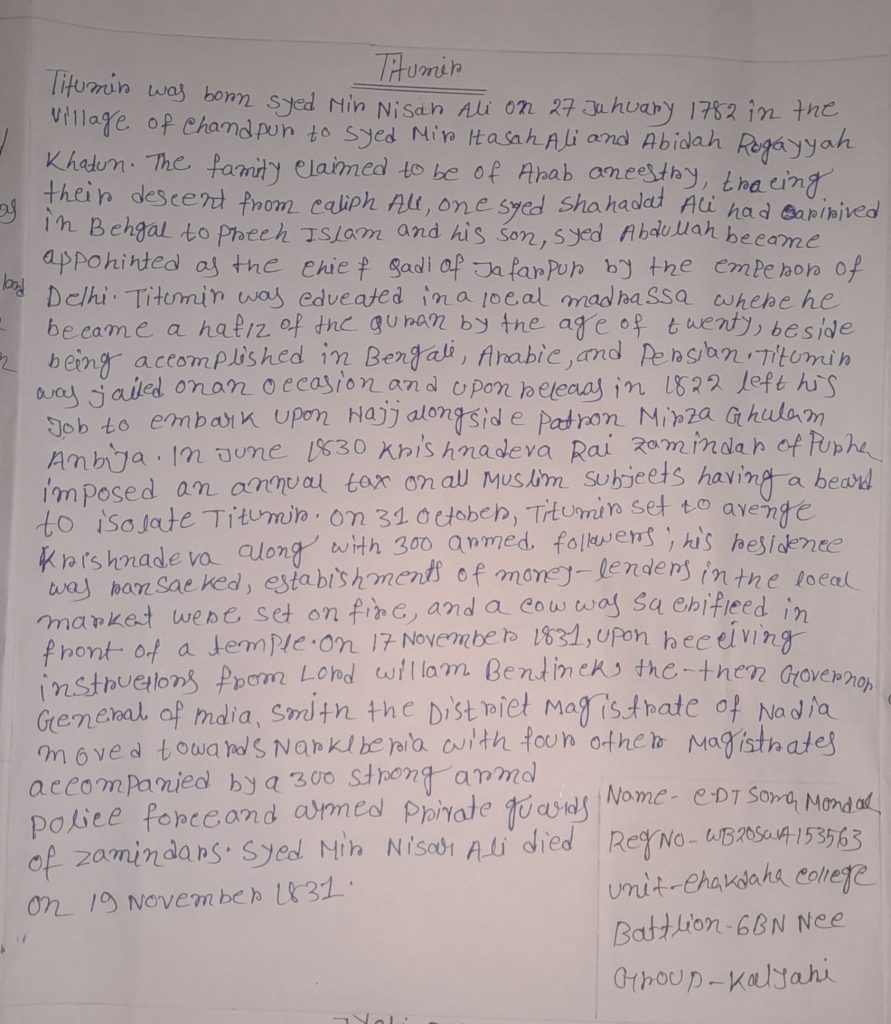 Titumir
Titumir was born syed Mir Nisar Ali on 27 January 1782 in the
village of Chandpur to Syed Mir Hasan Ali and Abidah Roqayyah
Khatun. The family claimed to be of Arab ancestry, tracing
their descent from caliph Ali, one syed Shahadat Ali had
in Bengal to preech Islam and his son, syed Abdullah become
appohinted as the chief Qadi of Jafarpur by the emperor of
Delhi. Titumir was educated in a local madrassa where he
became a hafiz of the Quran by the age of twenty, beside
being accomplished in Bengali, Arabic, and Persian. Titumir
was jailed on an occasion and upon releaas in 1822 left his
Job to embark upon Hajj alongside patron Mirza Ghulam
Anbija. In June 1830 Krishnadeva Rai zamindar of Purha
imposed an annual tax on all Muslim subjects having a beard
to isolate Titumir. on 31 october, Titumir set to avenge
Krishnadeva along with 300 armed followers; his residence
was ransacked, estabishments of money-lenders in the local
market were set on fire, and a cow was sacrificed in
front of a temple. On 17 November 1831, upon receiving
instructions from Lord Willam Bentincks the-then Governor
General of India, Smith the District Magistrate of Nadia
moved towards Narklberia with four other Magistrates
accompanied by a 300 strong armd
police force and armed private guards
of zamindars. Syed Mir Nisar Ali died
on 19 November 1831.
Name - CDT Soma Mondal
Reg No - WB20SWA153563
unit - chakdaha college
Battlion - 6BN Ncc
Group - Kalyani